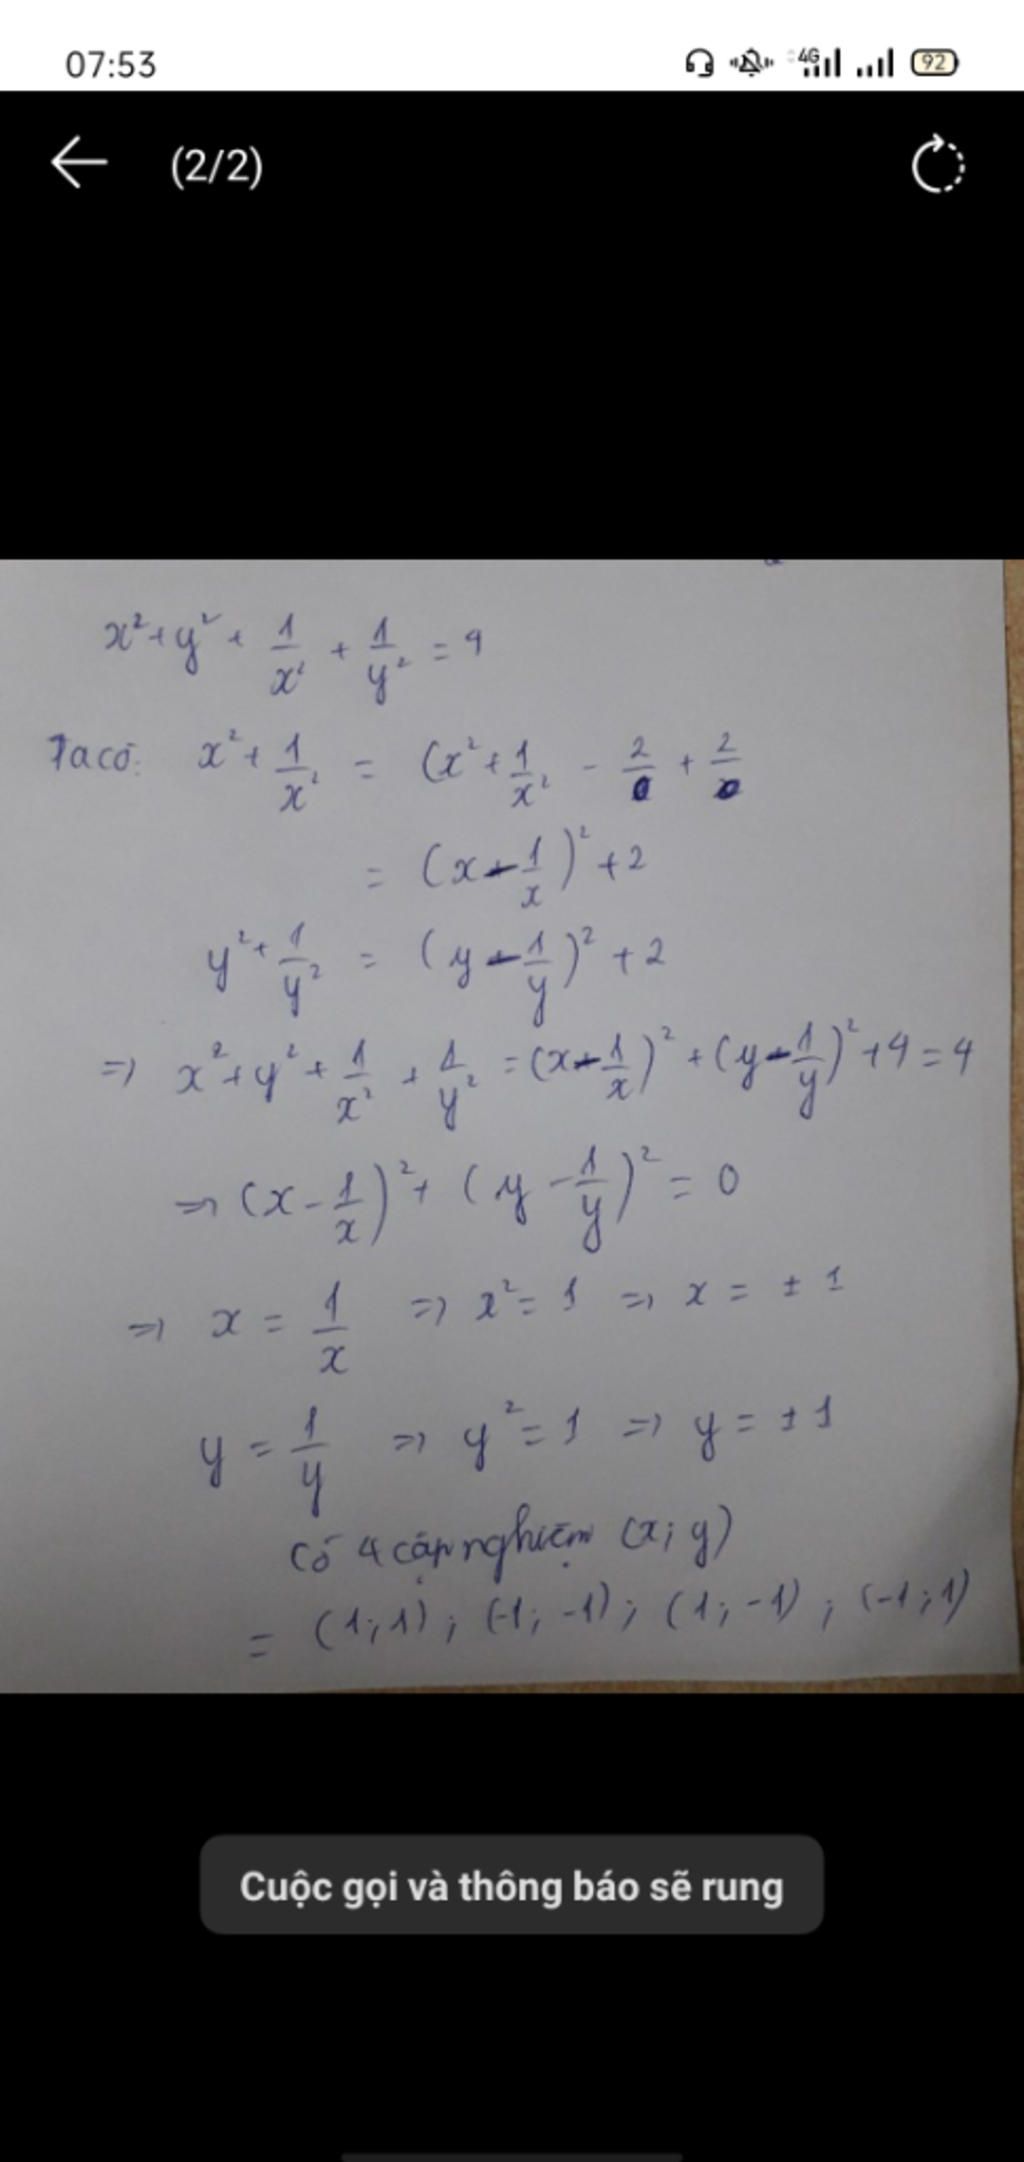 07:53 4G 92
(2/2)
x² + y² + 1/x² + 1/y² = 4
Ta có: x² + 1/x² = (x² + 1/x² - 2 + 2
= (x - 1/x)² + 2
y² + 1/y² = (y - 1/y)² + 2
=> x² + y² + 1/x² + 1/y² = (x - 1/x)² + (y - 1/y)² + 4 = 4
=> (x - 1/x)² + (y - 1/y)² = 0
=> x = 1/x => x² = 1 => x = ± 1
y = 1/y => y² = 1 => y = ± 1
Có 4 cặp nghiệm (x; y)
= (1; 1); (-1; -1); (1; -1); (-1; 1)
Cuộc gọi và thông báo sẽ rung